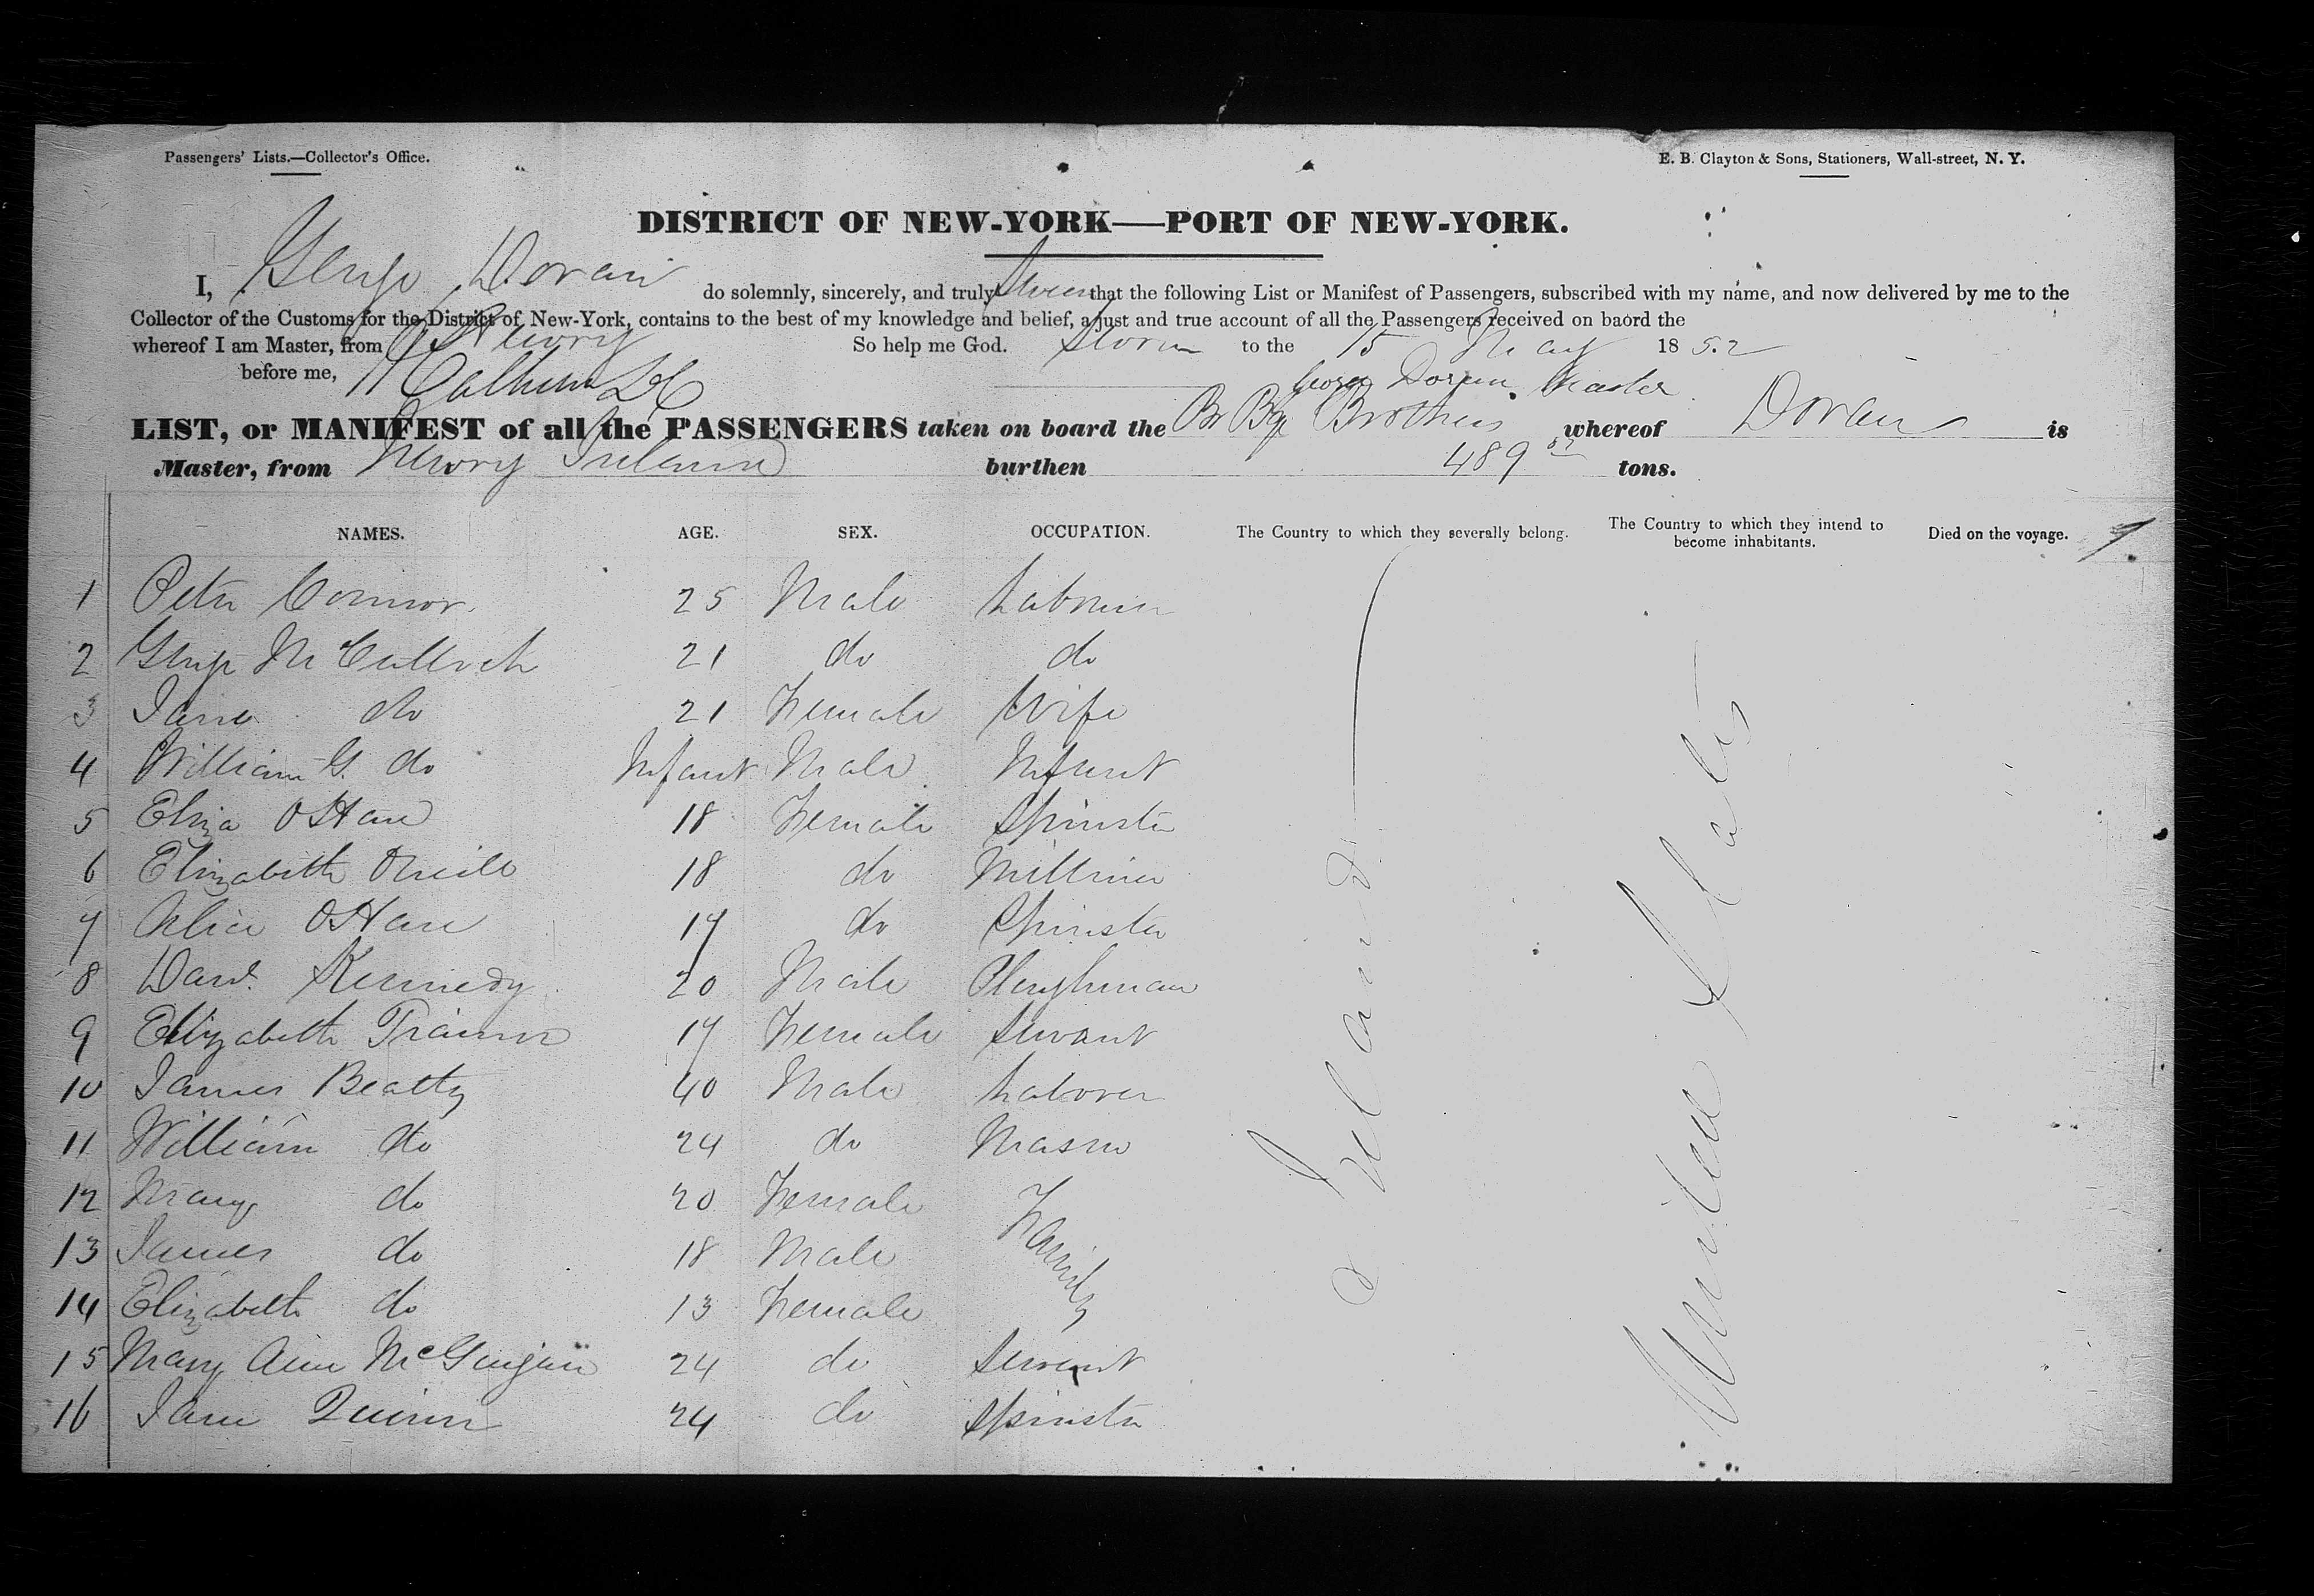 Passengers' Lists.—Collector's Office.
E. B. Clayton & Sons, Stationers, Wall-street, N. Y.
DISTRICT OF NEW-YORK—PORT OF NEW-YORK.
I, George Doran do solemnly, sincerely, and truly Swear that the following List or Manifest of Passengers, subscribed with my name, and now delivered by me to the
Collector of the Customs for the District of New-York, contains to the best of my knowledge and belief, a just and true account of all the Passengers received on baord the
whereof I am Master, from Newry So help me God. Sworn to the 15 May 1852
before me, Calhoun
George Doran Master
LIST, or MANIFEST of all the PASSENGERS taken on board the Br Bge Brothers whereof Doran is
Master, from Newry Ireland burthen 489 tons.
NAMES. AGE. SEX. OCCUPATION. The Country to which they severally belong. The Country to which they intend to become inhabitants. Died on the voyage.
1 Peter Connor. 25 Male Labourer
2 George McCulloch 21 do do
3 Jane do 21 Female Wife
4 William G. do Infant Male Infant
5 Eliza OHare 18 Female Spinster
6 Elizabeth ONeill 18 do Milliner
7 Alice OHare 17 do Spinster
8 Davd. Kennedy 20 Male Ploughman
9 Elizabeth Trainor 17 Female Servant
10 James Beatty 40 Male Laborer
11 William do 24 do Mason
12 Mary do 20 Female
13 James do 18 Male
Family
14 Elizabeth do 13 Female
15 Mary Ann McGuigan 24 do Servant
16 Jane Quinn 24 do Spinster
Ireland
United States